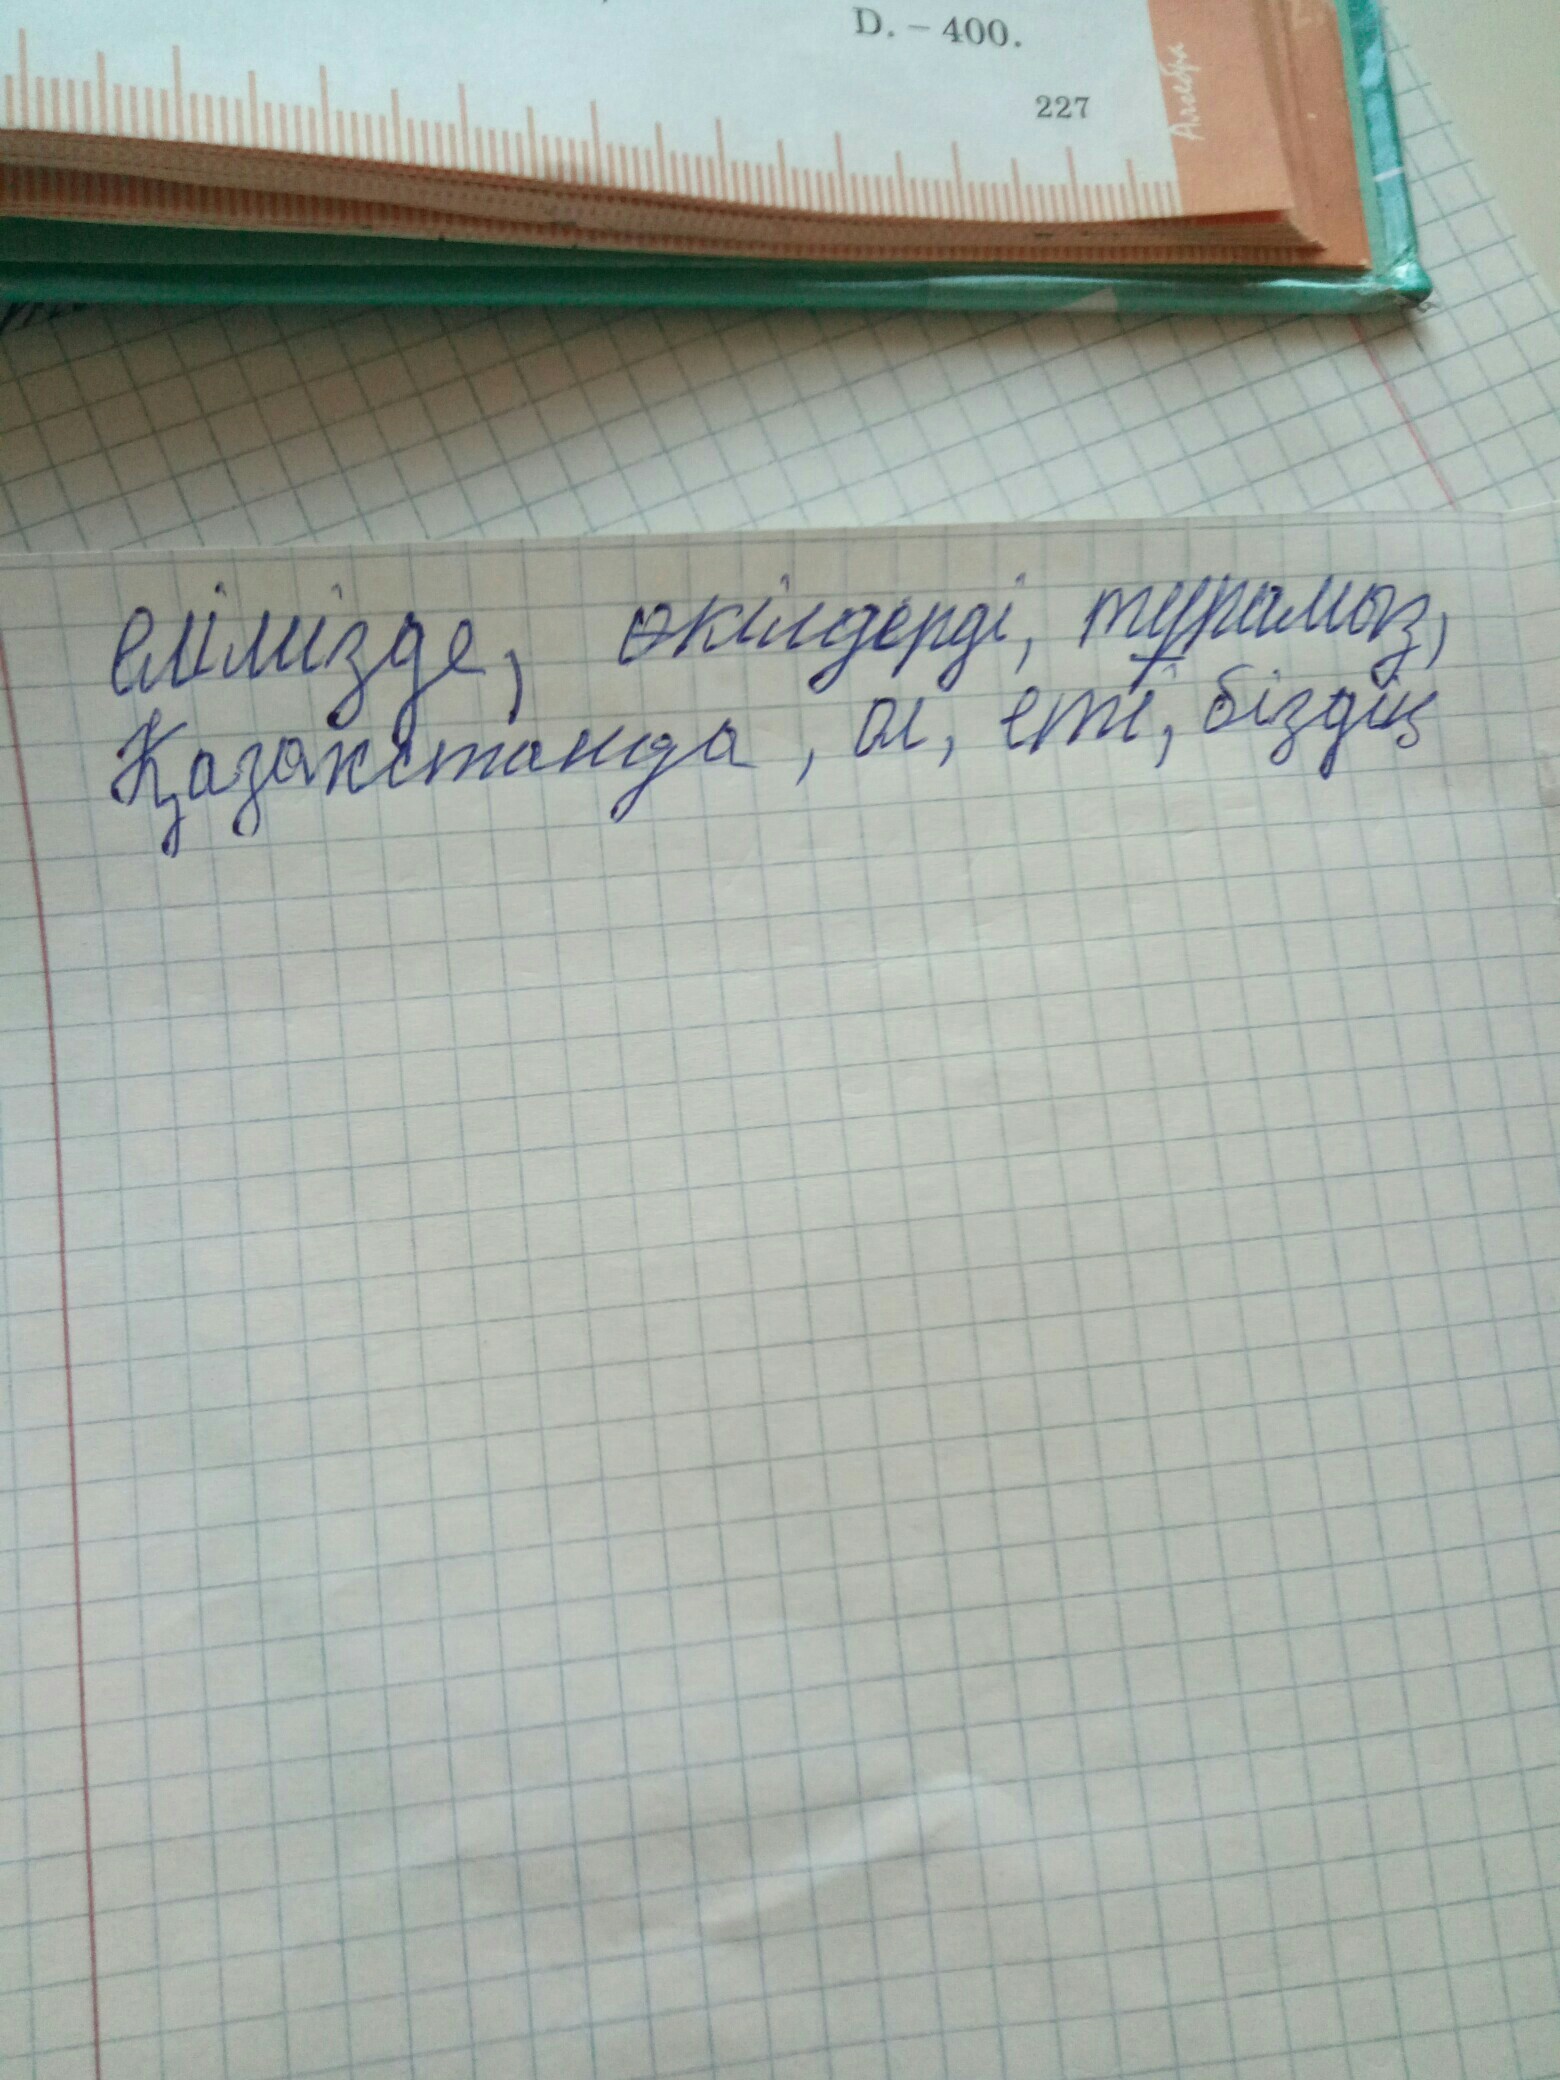 D. – 400.
227
Алгебра
елімізде, өкілдерді, тұрамыз,
Қазакстанда, ал, еті, біздің